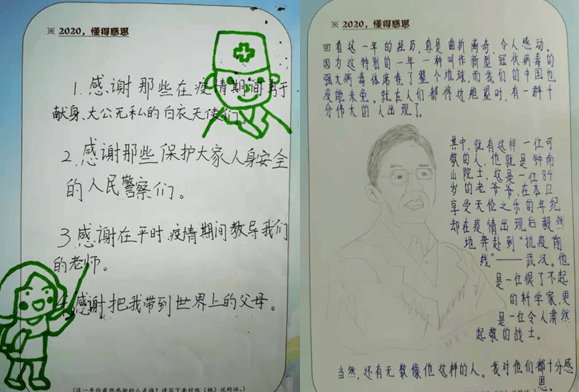 ※ 2020，懂得感恩
1. 感谢那些在疫情期间勇于
献身、大公无私的白衣天使们。
2. 感谢那些保护大家人身安全
的人民警察们。
3. 感谢在平时、疫情期间教导我们
的老师。
4. 感谢把我带到世界上的父母。
※ 2020，懂得感恩
回看这一年的经历，真是曲折离奇，令人感动。
因为这特别的一年，一种叫作新型冠状病毒的
强大病毒体席卷了整个地球，而我们的中国也
没能幸免。就在人们都将近绝望时，有一群十
分伟大的人出现了。
其中，就有这样一位可
敬的人，他就是钟南
山院士，这是一位84
岁的老爷爷，在本应
享受天伦之乐的年纪
却在疫情出现后毅然
地奔赴到“抗疫前
线”——武汉。他
是一位了不起
的科学家，更
是一位令人肃然
起敬的战士。
当然，还有无数像他这样的人。我对他们都十分感
恩。